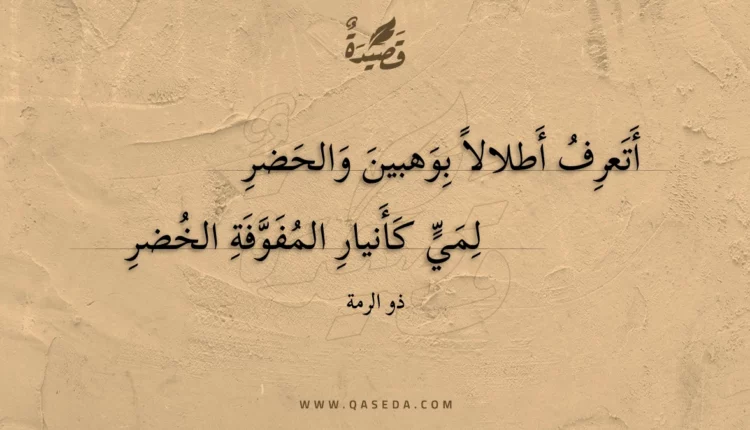 قَصِيدَةٌ
أَتَعرِفُ أَطلالاً بِوَهبينَ وَالحَضرِ
لِمَيٍّ كَأَنيارِ المُفَوَّفَةِ الخُضرِ
ذو الرمة
WWW.QASEDA.COM